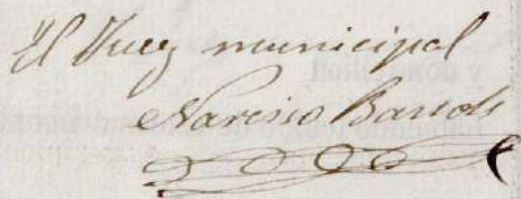 El Juez municipal
Narciso Bartoli